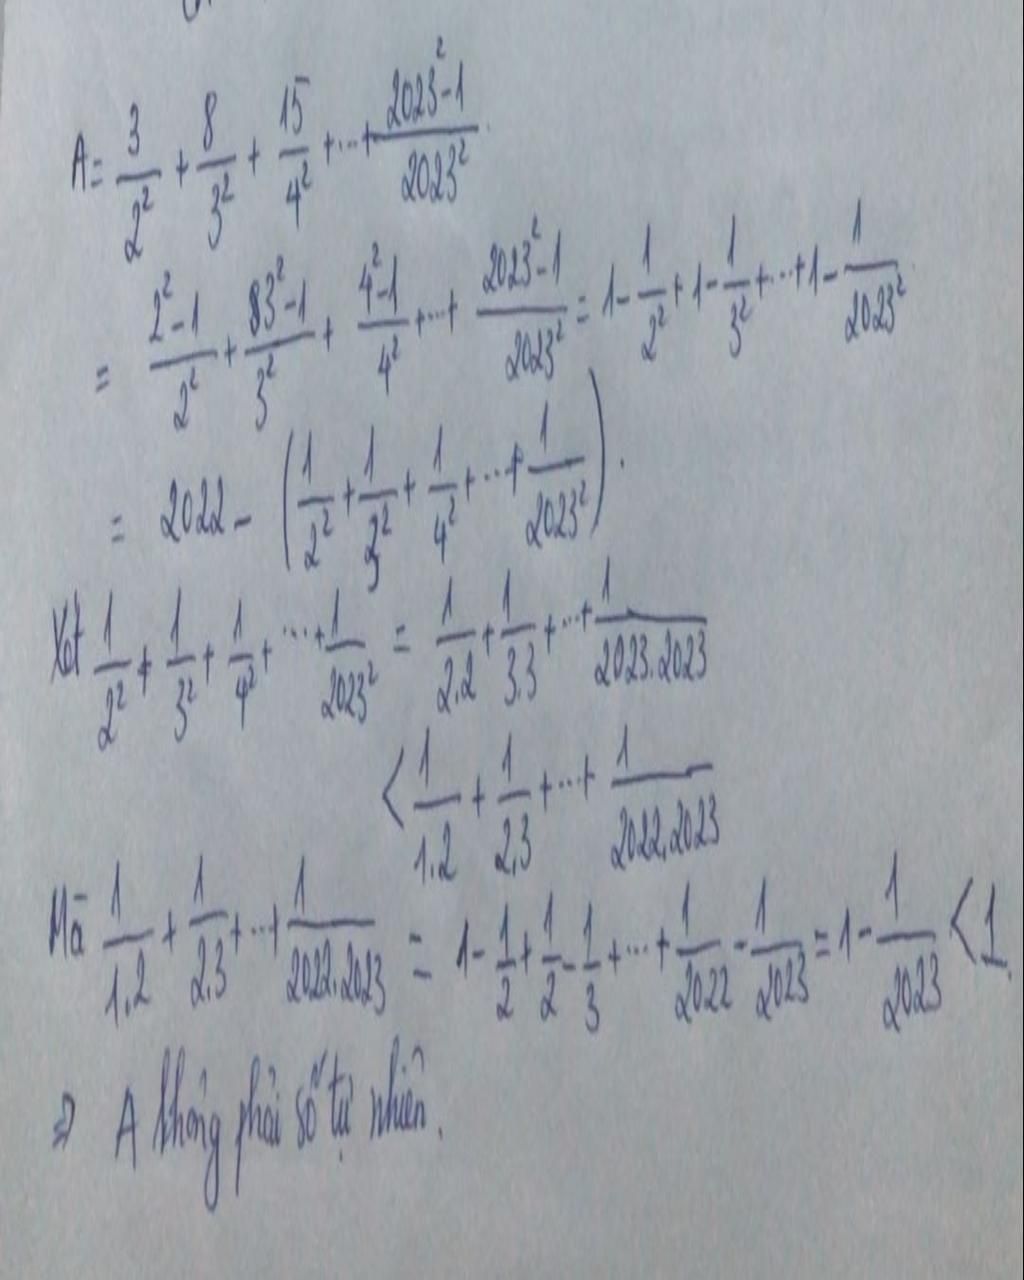 A = 3/2² + 8/3² + 15/4² + ... + 2023²-1/2023².
= 2²-1/2² + 83²-1/3² + 4²-1/4² + ... + 2023²-1/2023² = 1 - 1/2² + 1 - 1/3² + ... + 1 - 1/2023².
= 2022 - (1/2² + 1/3² + 1/4² + ... + 1/2023²).
Xét 1/2² + 1/3² + 1/4² + ... + 1/2023² = 1/2.2 + 1/3.3 + ... + 1/2023.2023
< 1/1.2 + 1/2.3 + ... + 1/2022.2023
Mà 1/1.2 + 1/2.3 + ... + 1/2022.2023 = 1 - 1/2 + 1/2 - 1/3 + ... + 1/2022 - 1/2023 = 1 - 1/2023 < 1.
⇒ A không phải số tự nhiên.